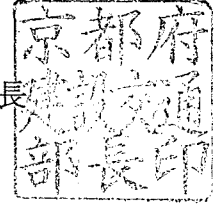 長
京都府
建設交通
部長印